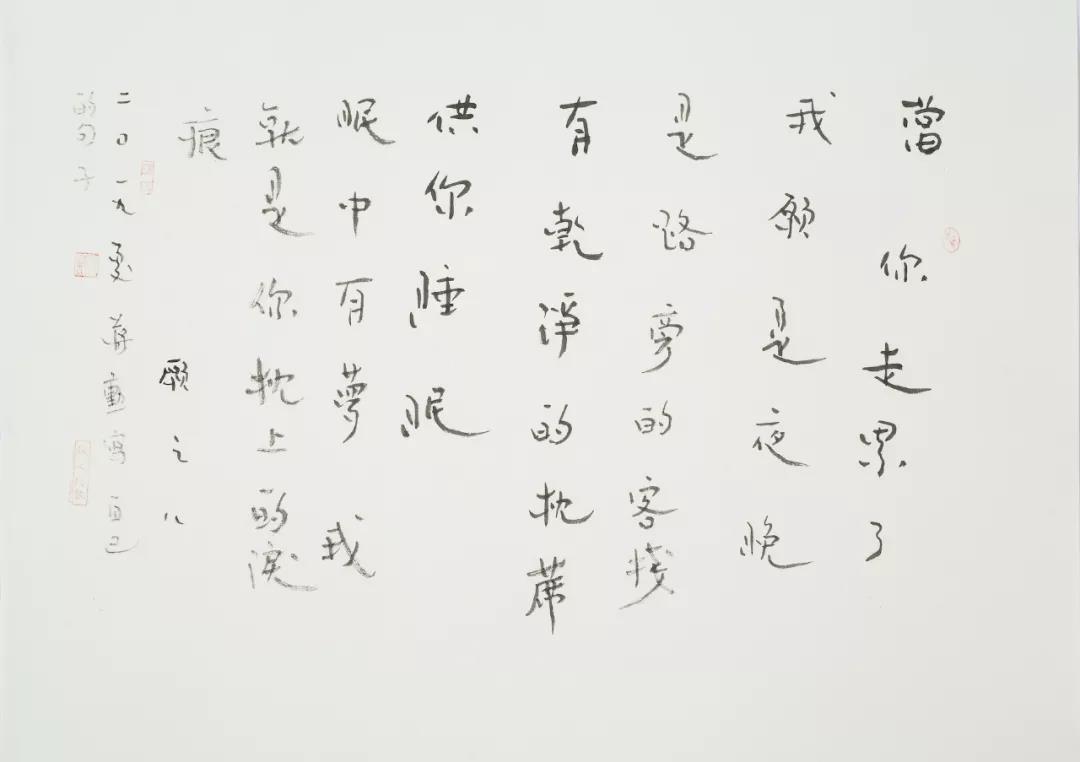 當你走累了
我願是夜晚
是路旁的客棧
有乾淨的枕蓆
供你睡眠
眠中有夢我
就是你枕上的淚
痕
願之八
二〇一九夏蔣勳寫自己
的句子